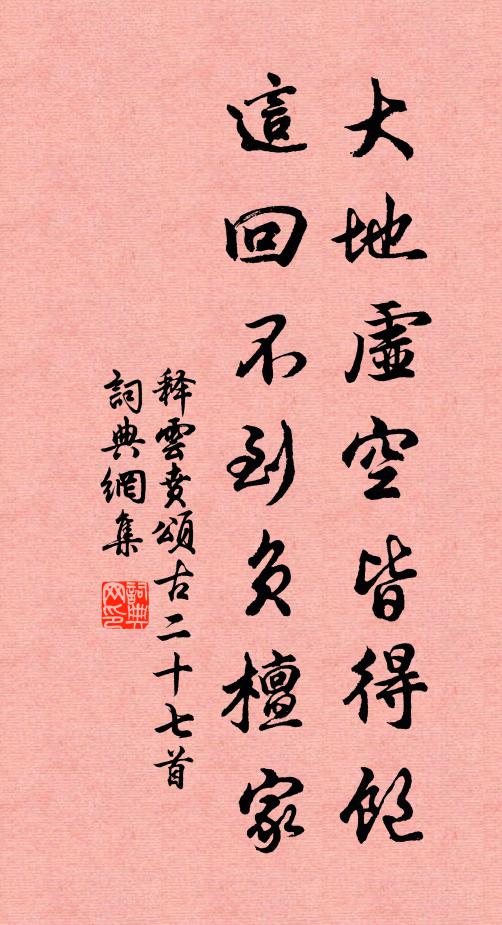 大地虛空皆得飽
這回不到負檀家
釋雲賁頌古二十七首
詞典網集
詞典网印